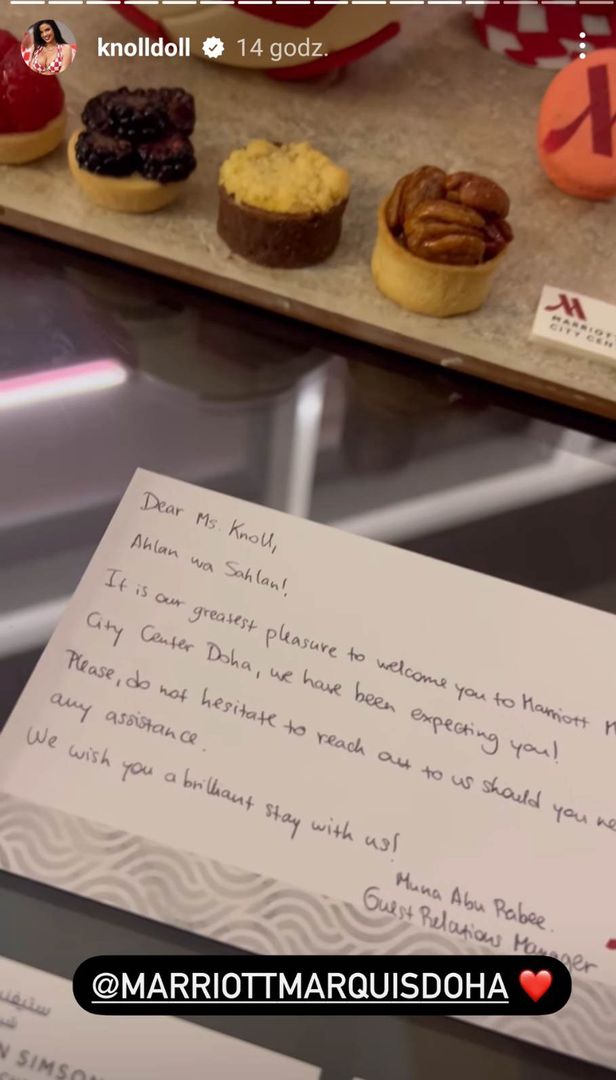 knolldoll 14 godz.
MARRIOTT
CITY CEN
Dear Ms. Knoll,
Ahlan wa Sahlan!
It is our greatest pleasure to welcome you to Marriott M
City Center Doha, we have been expecting you!
Please, do not hesitate to reach out to us should you ne
any assistance.
We wish you a brilliant stay with us!
Muna Abu Rabee.
Guest Relations Manager
@MARRIOTTMARQUISDOHA
N SIMSON